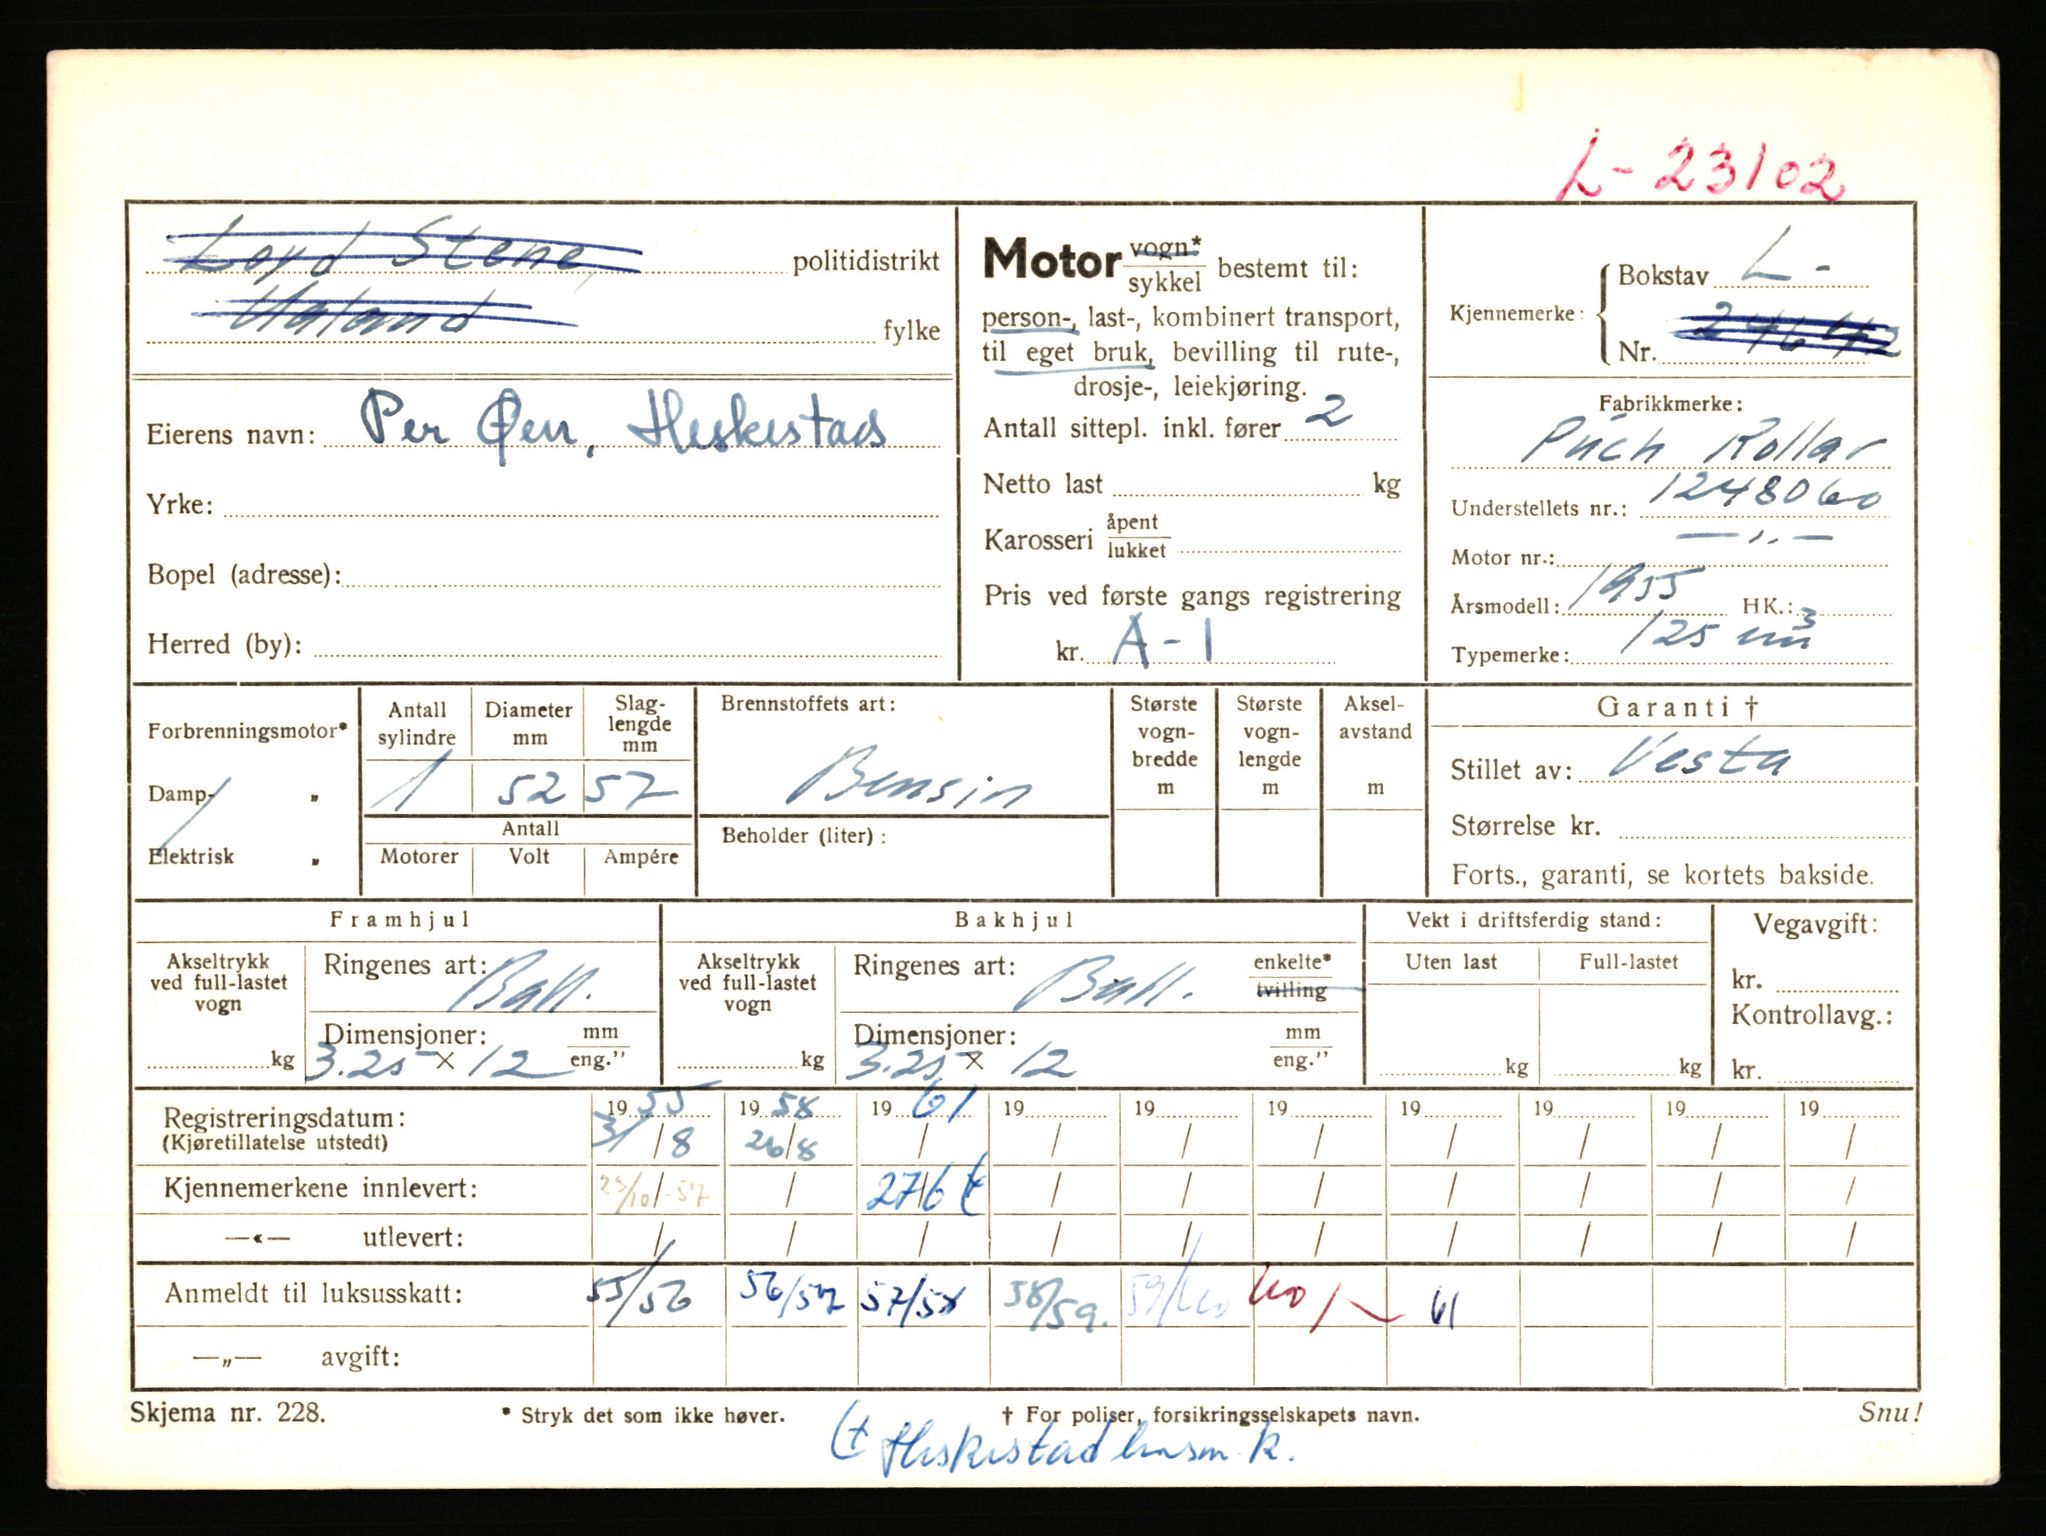 L-23102
Loyd Stene, politidistrikt
Ualand fylke
Eierens navn: Per Øen, Heskestad
Yrke:
Bopel (adresse):
Herred (by):
Motor vogn* / sykkel bestemt til:
person-, last-, kombinert transport,
til eget bruk, bevilling til rute-,
drosje-, leiekjøring.
Antall sittepl. inkl. fører 2
Netto last kg
Karosseri åpent / lukket
Pris ved første gangs registrering
kr. A-1
Kjennemerke: Bokstav L-
Nr. 24642
Fabrikkmerke:
Puch Rollar
Understellets nr.: 1248060
Motor nr.: —„—
Årsmodell: 1955 HK.:
Typemerke: 125 cm³
Forbrenningsmotor*
Damp- „
Elektrisk „
Antall sylindre Diameter mm Slag-lengde mm
1 52 57
Antall
Motorer Volt Ampére
Brennstoffets art:
Bensin
Beholder (liter):
Største vogn-bredde m
Største vogn-lengde m
Aksel-avstand m
Garanti †
Stillet av: Vesta
Størrelse kr.
Forts., garanti, se kortets bakside.
Framhjul
Akseltrykk ved full-lastet vogn kg
Ringenes art: Ball.
Dimensjoner: mm / eng."
3.25 x 12
Bakhjul
Akseltrykk ved full-lastet vogn kg
Ringenes art: Ball. enkelte* / tvilling
Dimensjoner: mm / eng."
3.25 x 12
Vekt i driftsferdig stand:
Uten last Full-lastet
kg kg
Vegavgift:
kr.
Kontrollavg.:
kr.
Registreringsdatum: 1955 1958 1961 19 19 19 19 19 19 19
(Kjøretillatelse utstedt) 31/8 26/8 / / / / / / / /
Kjennemerkene innlevert: 23/10-57 / 27/6 / / / / / / /
—«— utlevert: / / / / / / / / / /
Anmeldt til luksusskatt: 55/56 56/57 57/58 58/59. 59/60 60/ 61
—„— avgift:
Skjema nr. 228. * Stryk det som ikke høver. † For poliser, forsikringsselskapets navn. Snu!
Heskestad lensm. k.